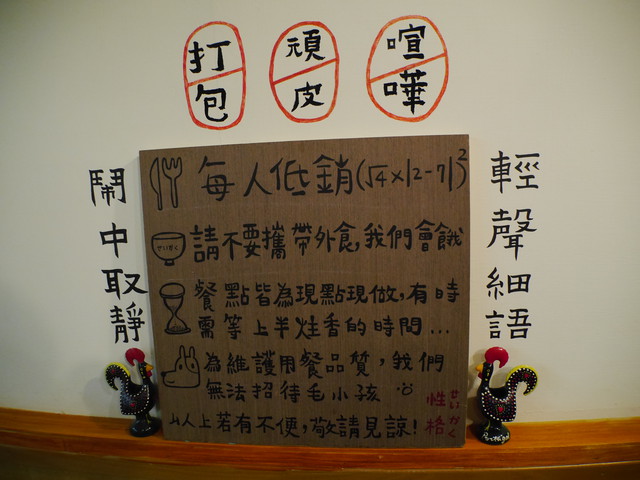 打包
頑皮
喧嘩
鬧中取靜
每人低銷(√4×|2-7|)²
せいかく
請不要攜帶外食,我們會餓
餐點皆為現點現做,有時
需等上半炷香的時間...
為維護用餐品質,我們
無法招待毛小孩
以上若有不便,敬請見諒!
性格
せいかく
輕聲細語